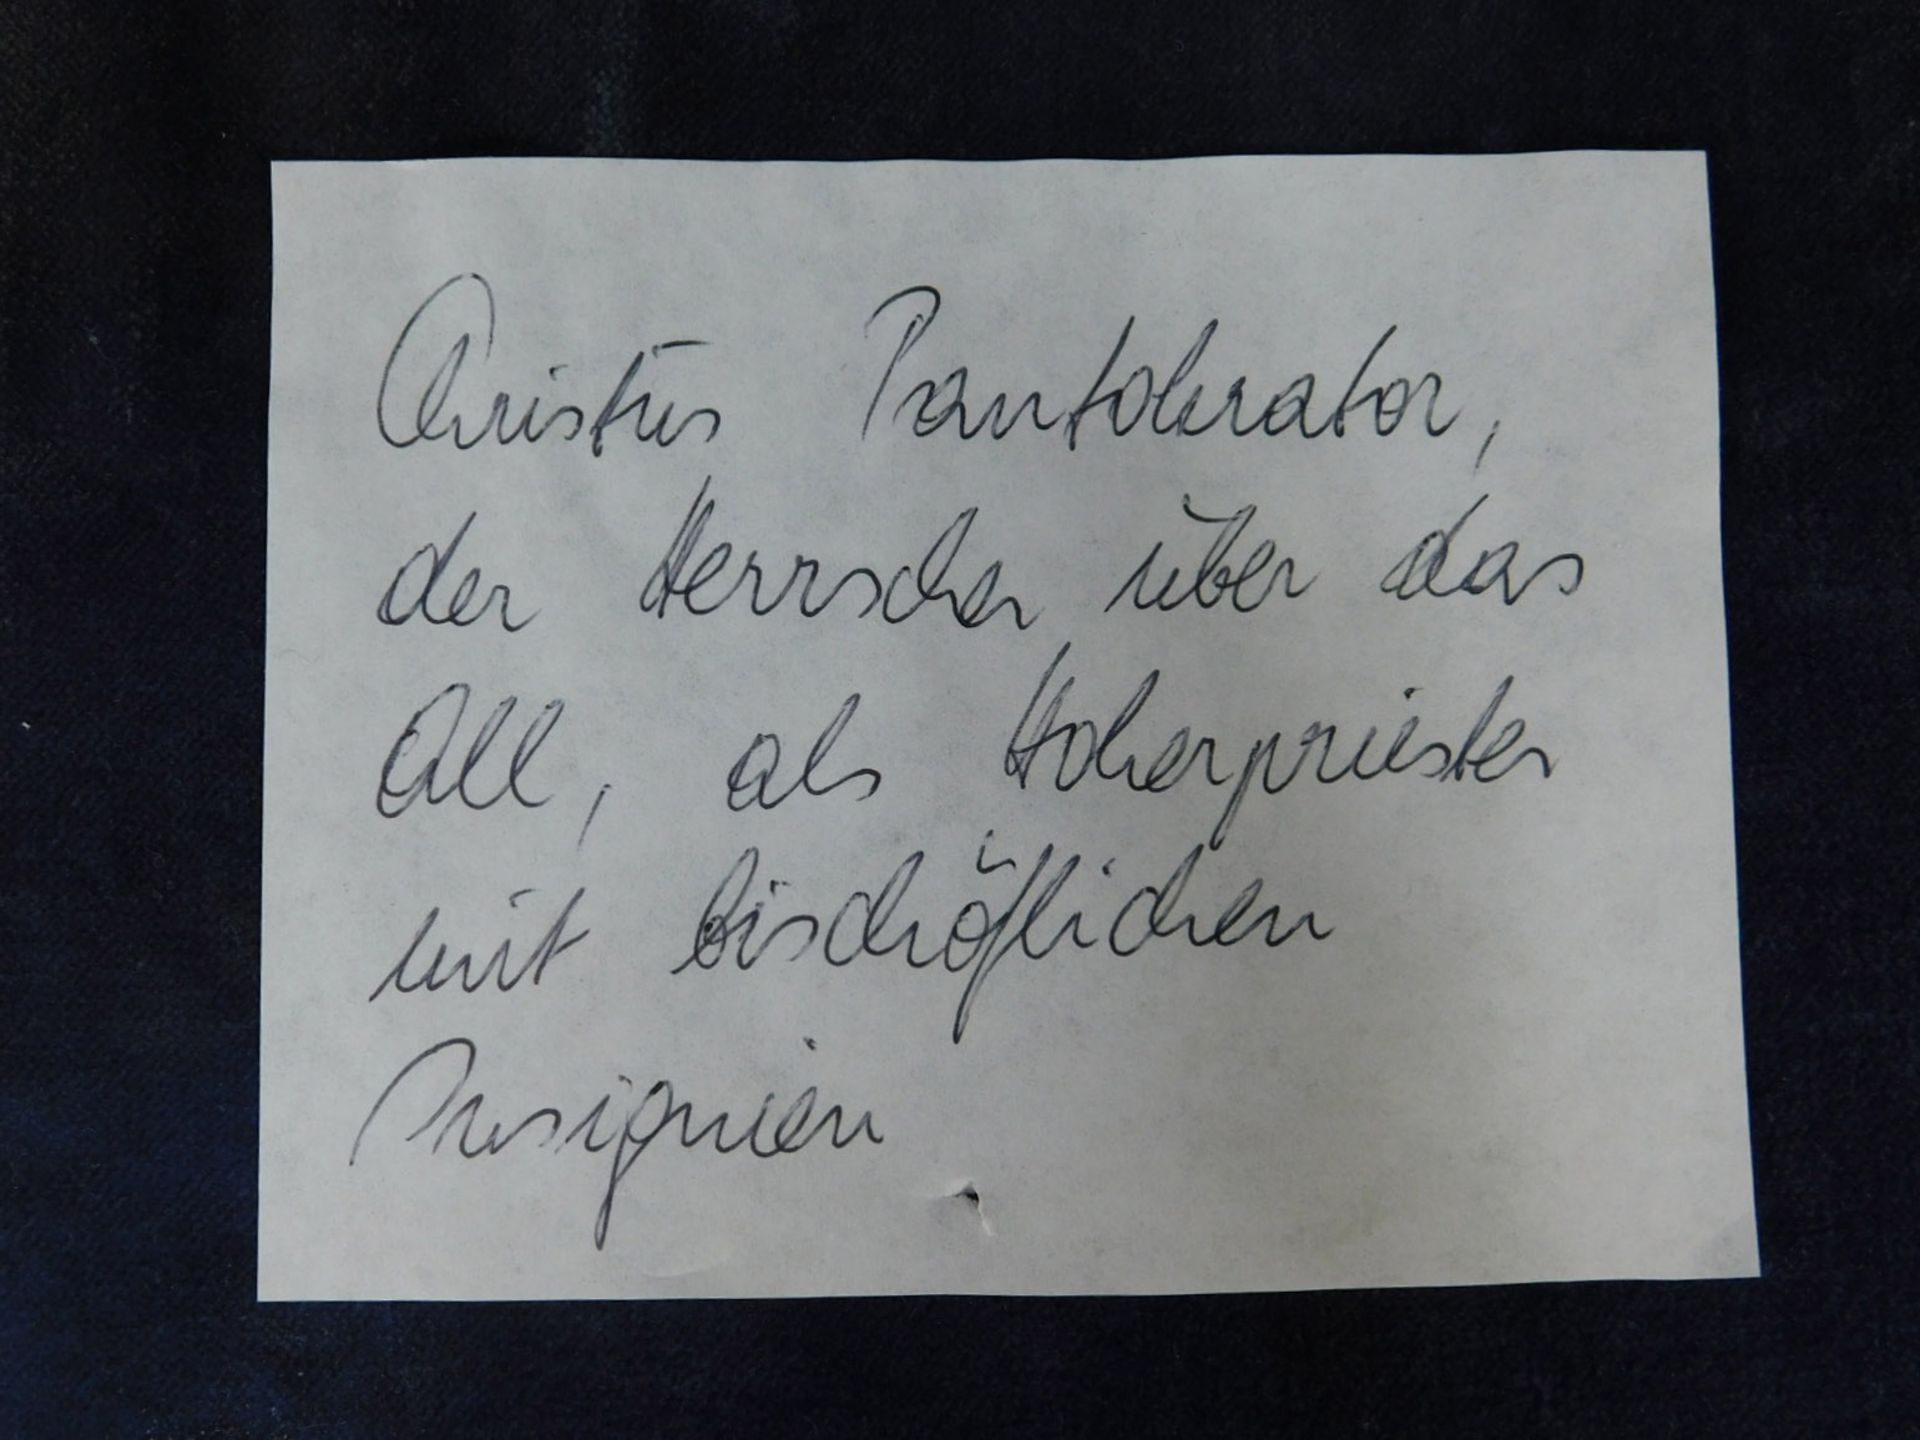 Christus Pantokrator,
der Herrscher über das
All, als Hoherpriester
mit bischöflichen
Insignien